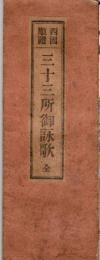 四國
順禮
三十三所御詠歌 全